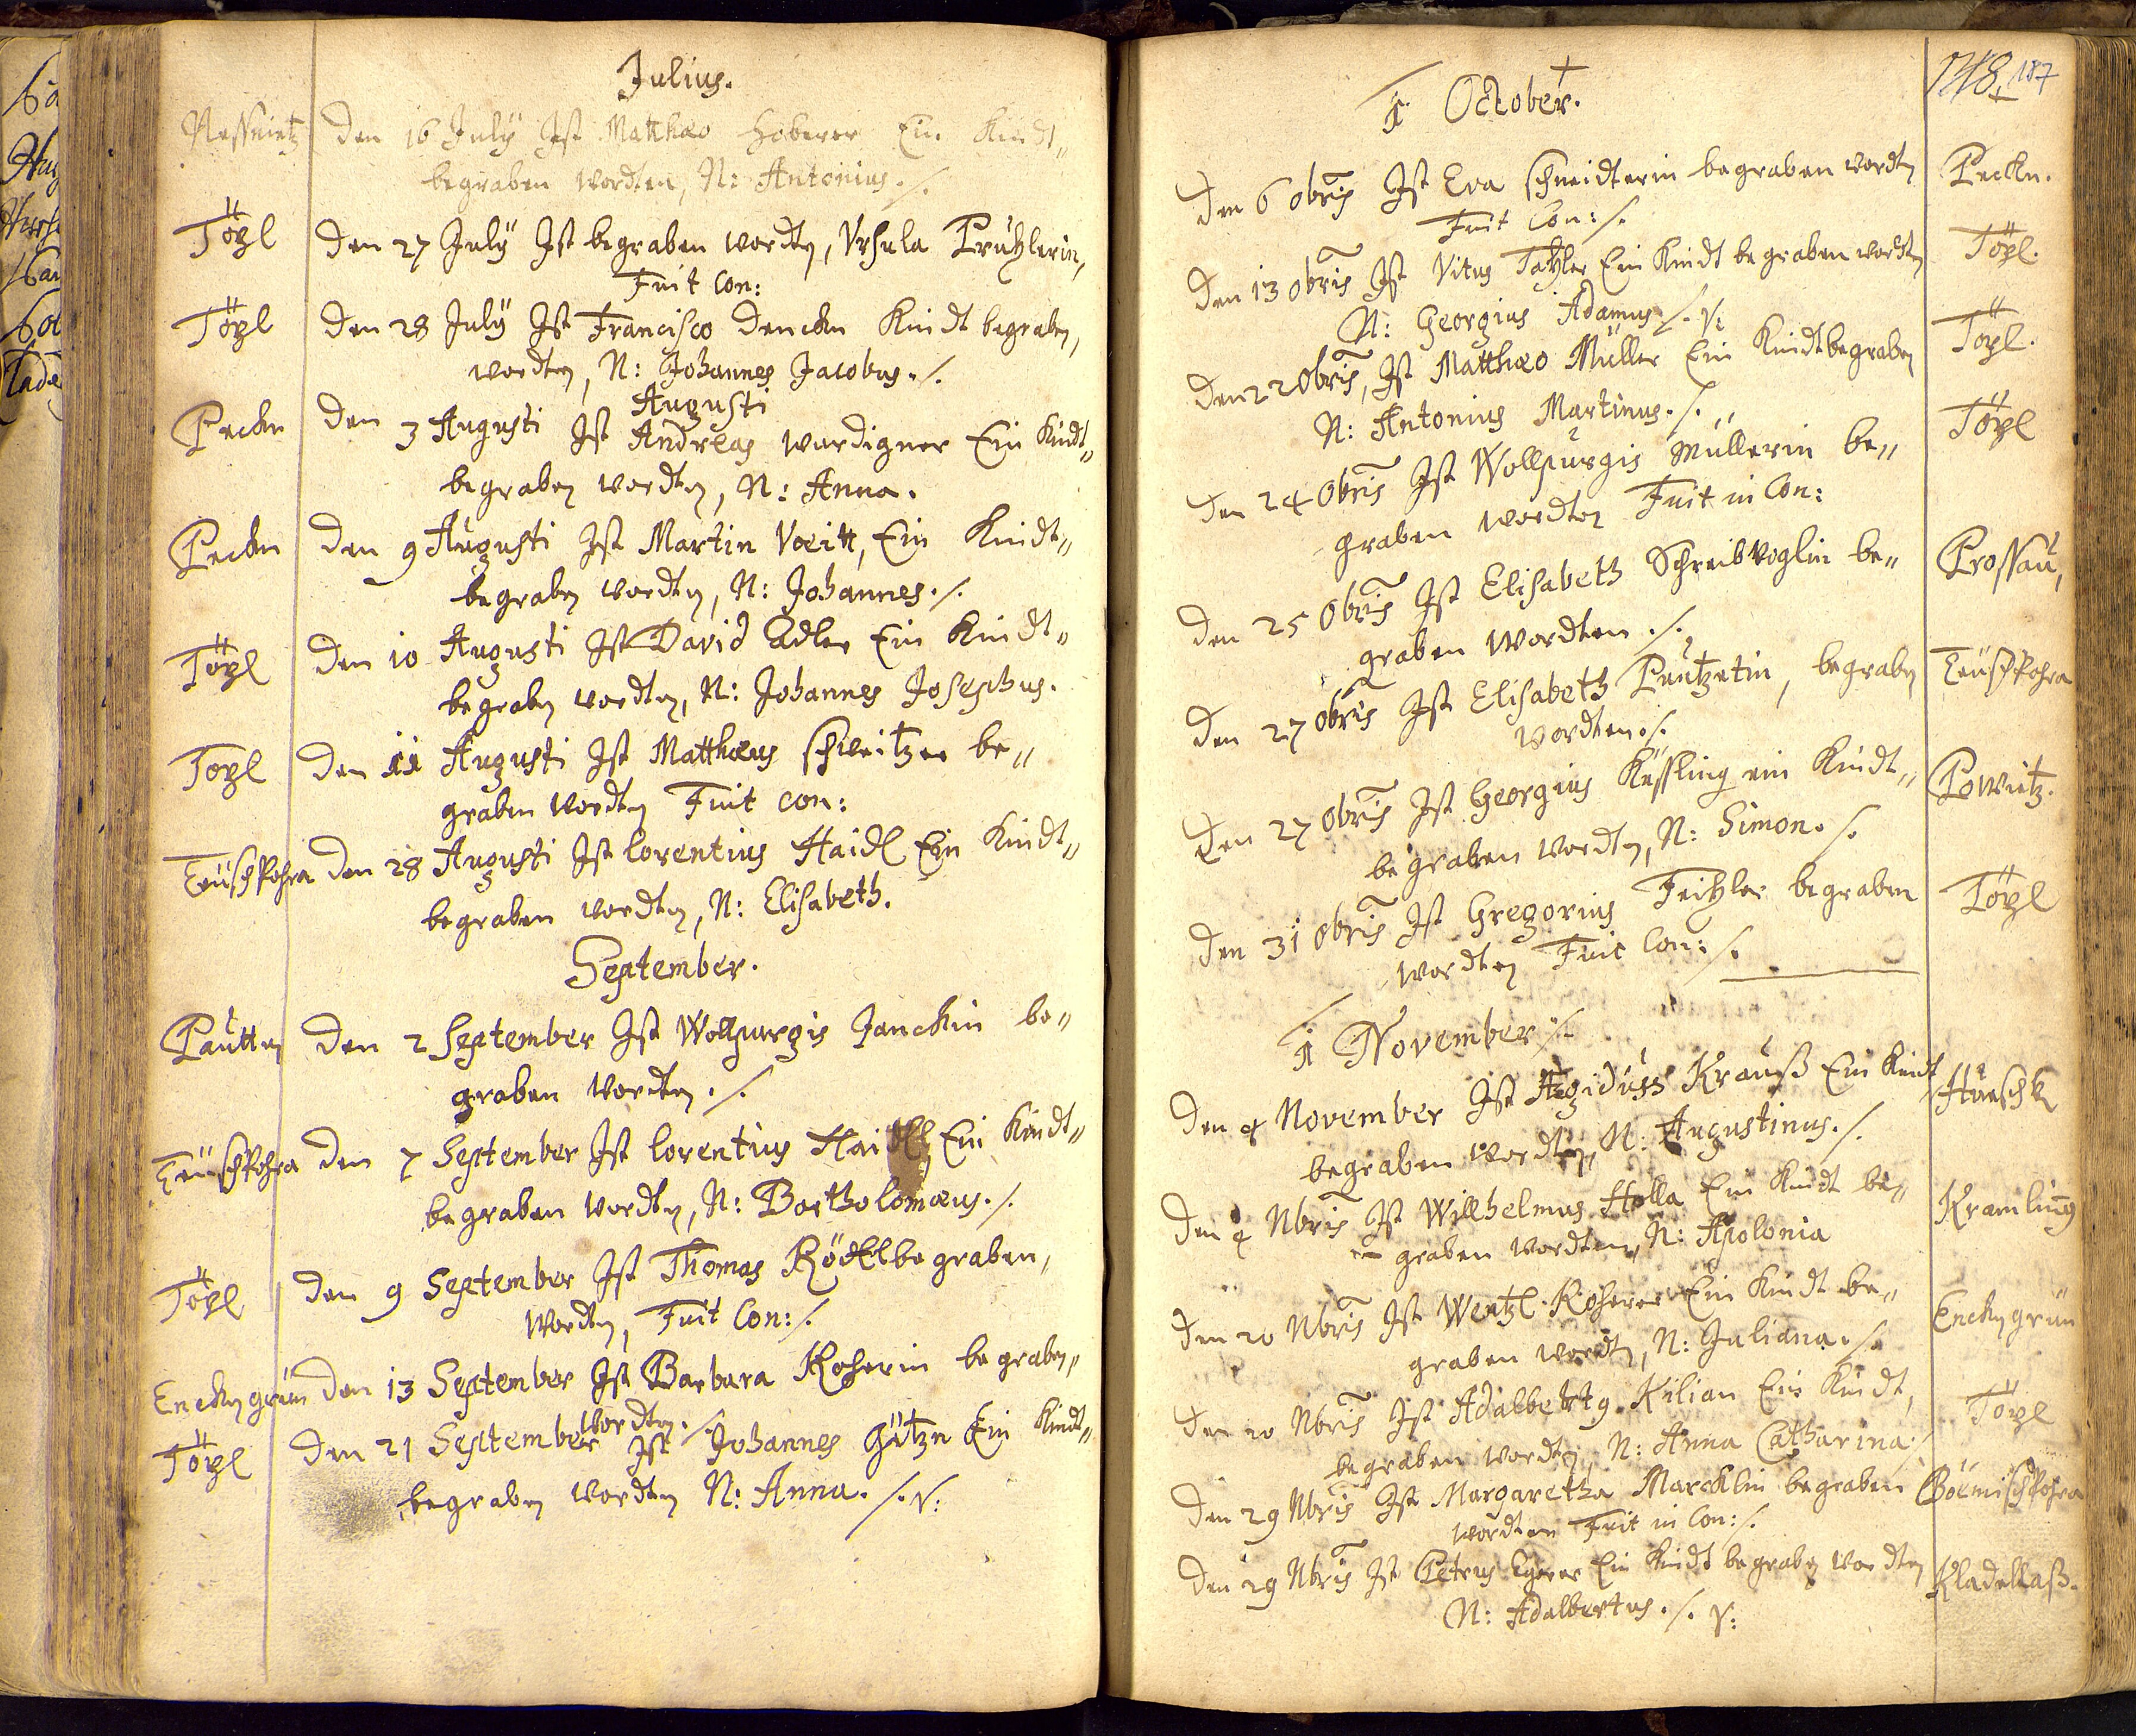 Julius.
Nessnietz Den 16 July Ist Matthæo Hoberer Ein Kindt„
begraben wordten, N: Antonius ./.
Töpl Den 27 July Ist begraben wordtn, Vrsula Pruhlerin,
Fuit Con:
Töpl Den 28 July Ist Francisco Denckn Kindt begraben,
wordtn, N: Johannes Jacobus ./.
Augusti
Peckn Den 3 Augusti Ist Andreas wurdigner Ein Kindt„
begraben wordtn, N: Anna.
Peckn Den 9 Augusti Ist Martin Voeitt, Ein Kindt„
begraben wordtn, N: Johannes ./.
Töpl Den 10 Augusti Ist David Adler Ein Kindt„
begraben wordtn, N: Johannes Josephus.
Topl Den 11 Augusti Ist Matthæus schweitzer be„
graben wordtn Fuit Con:
Teüschkohra Den 28 Augusti Ist lorentius Haidl Ein Kindt„
begraben wordtn, N: Elisabeth.
September.
Pauttn Den 2 September Ist Wollpurgis Janckin be„
graben wordtn ./.
Teüschkohra Den 7 September Ist lorentius Haidl, Ein Kindt„
begraben wordtn, N: Bartholomæus ./.
Töpl Den 9 September Ist Thomas Rödtl begraben,
wordtn, Fuit Con: /.
Enckngrün Den 13 September Ist Barbara Koherin begraben„
wordtn ./.
Töpl Den 21 September Ist Johannes Götzn Ein Kindt„
begraben wordtn N: Anna. /. v:
187
October.
Den 6 8bris Ist Eva schneidterin begraben wordtn Peckn.
Fuit Con: /.
Den 13 8bris Ist Vitus Tatzler Ein Kindt begraben wordtn Töpl.
N: Georgius Adamus /. v:
Den 22 8bris, Ist Matthæo Müller Ein Kindt begraben Töpl.
N: Antonius Martinus ./.
Den 24 8bris Ist Wollpurgis Müllerin be„ Töpl
graben wordten Fuit in Con:
Den 25 8bris Ist Elisabeth Schreibvoglin be„ Prossau,
graben wordten ./.
Den 27 8bris Ist Elisabeth Pautzetin, begraben Teüschkohra
wordten ./.
Den 27 8bris Ist Georgius Küssling ein Kindt„ Powitz.
begraben wordtn, N: Simon ./.
Den 31 8bris Ist Gregorius Feitzler begraben Töpl
wordtn Fuit Con: /.
November ./.
Den 4 November Ist Ægiduss Krauß Ein Kindt Hurschk
begraben wordtn, N: Augustinus ./.
Den 4 Nbris Ist Willhelmus Holla Ein Kindt be„ Kramling
graben wordten, N: Apolonia
Den 20 Nbris Ist Wentzl Koherer Ein Kindt be„ Enckngrün
graben wordtn, N: Juliana ./.
Den 20 Nbris Ist Adalbertg Kilian Ein Kindt, Töpl
begraben wordtn, N: Anna Catharina /
Den 29 Nbris Ist Margaretha Marcklin begraben Böemischkohra
wordten Fuit in Con: /.
Den 29 Nbris Ist Petrus Egerer Ein Kindt begraben wordten Kladellaß.
N: Adalbertus ./. v: